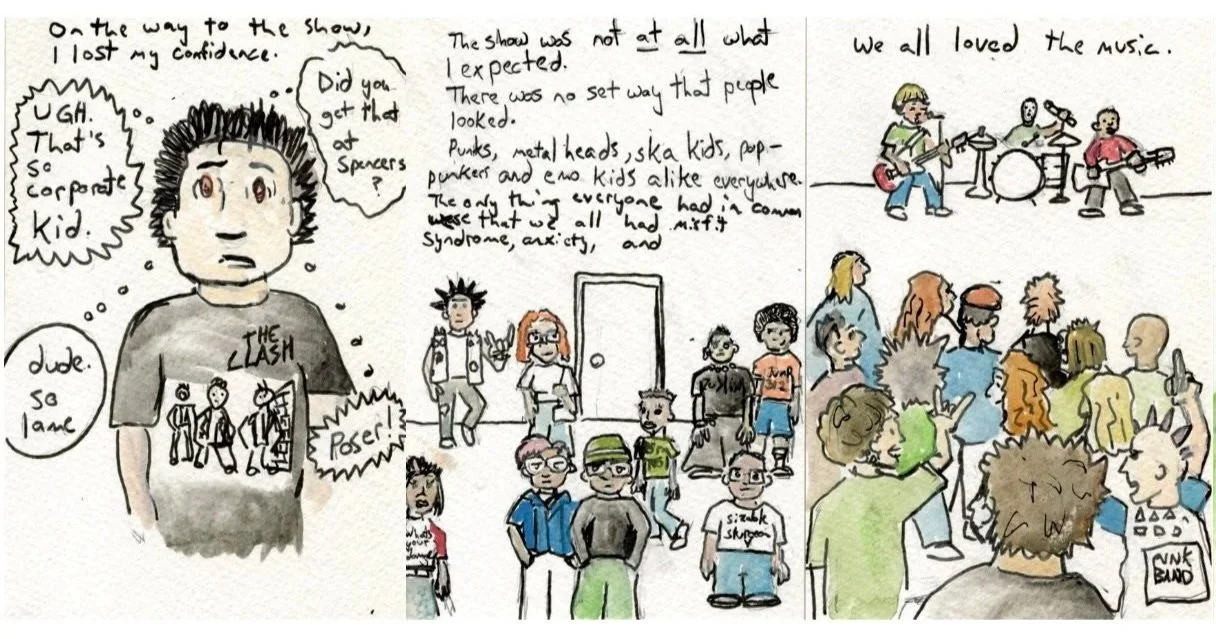 On the way to the show,
I lost my confidence.
UGH.
That's
so
corporate
kid.
Did you
get that
at
Spencers
?
THE
CLASH
dude.
so
lame
Poser!
The show was not at all what
I expected.
There was no set way that people
looked.
Punks, metal heads, ska kids, pop-
punkers and emo kids alike everywhere.
The only thing everyone had in common
was that we all had misfit
syndrome, anxiety, and
What's
your
sizable
sturgeon
We all loved the music.
PUNK
BAND